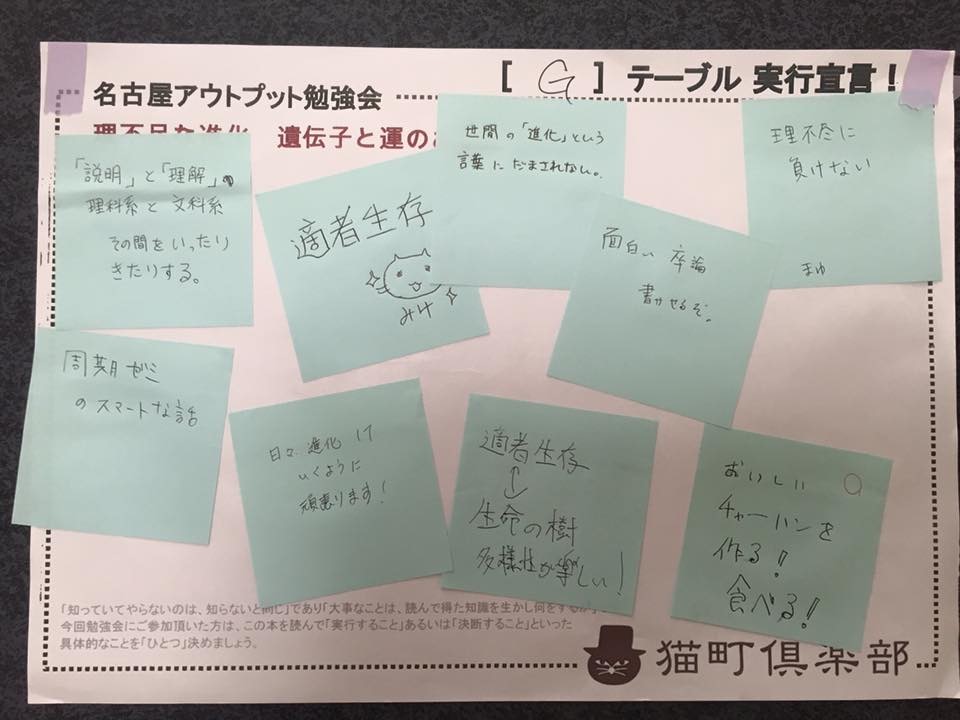 [ G ] テーブル 実行宣言！
名古屋アウトプット勉強会
理不尽な進化 遺伝子と運の
「説明」と「理解」の
理科系と文科系
その間をいったり
きたりする。
適者生存
みけ
世間の「進化」という
言葉にだまされない。
面白い卒論
書かせるぞ。
理不尽に
負けない
まゆ
周期ゼミ
のスマートな話
日々進化して
いくように
頑張ります！
適者生存
↕
生命の樹
多様性が楽しい！
おいしい
チャーハンを
作る！
食べる！
「知っていてやらないのは、知らないと同じ」であり「大事なことは、読んで得た知識を生かし何をするか」
今回勉強会にご参加頂いた方は、この本を読んで「実行すること」あるいは「決断すること」といった
具体的なことを「ひとつ」決めましょう。
猫町倶楽部